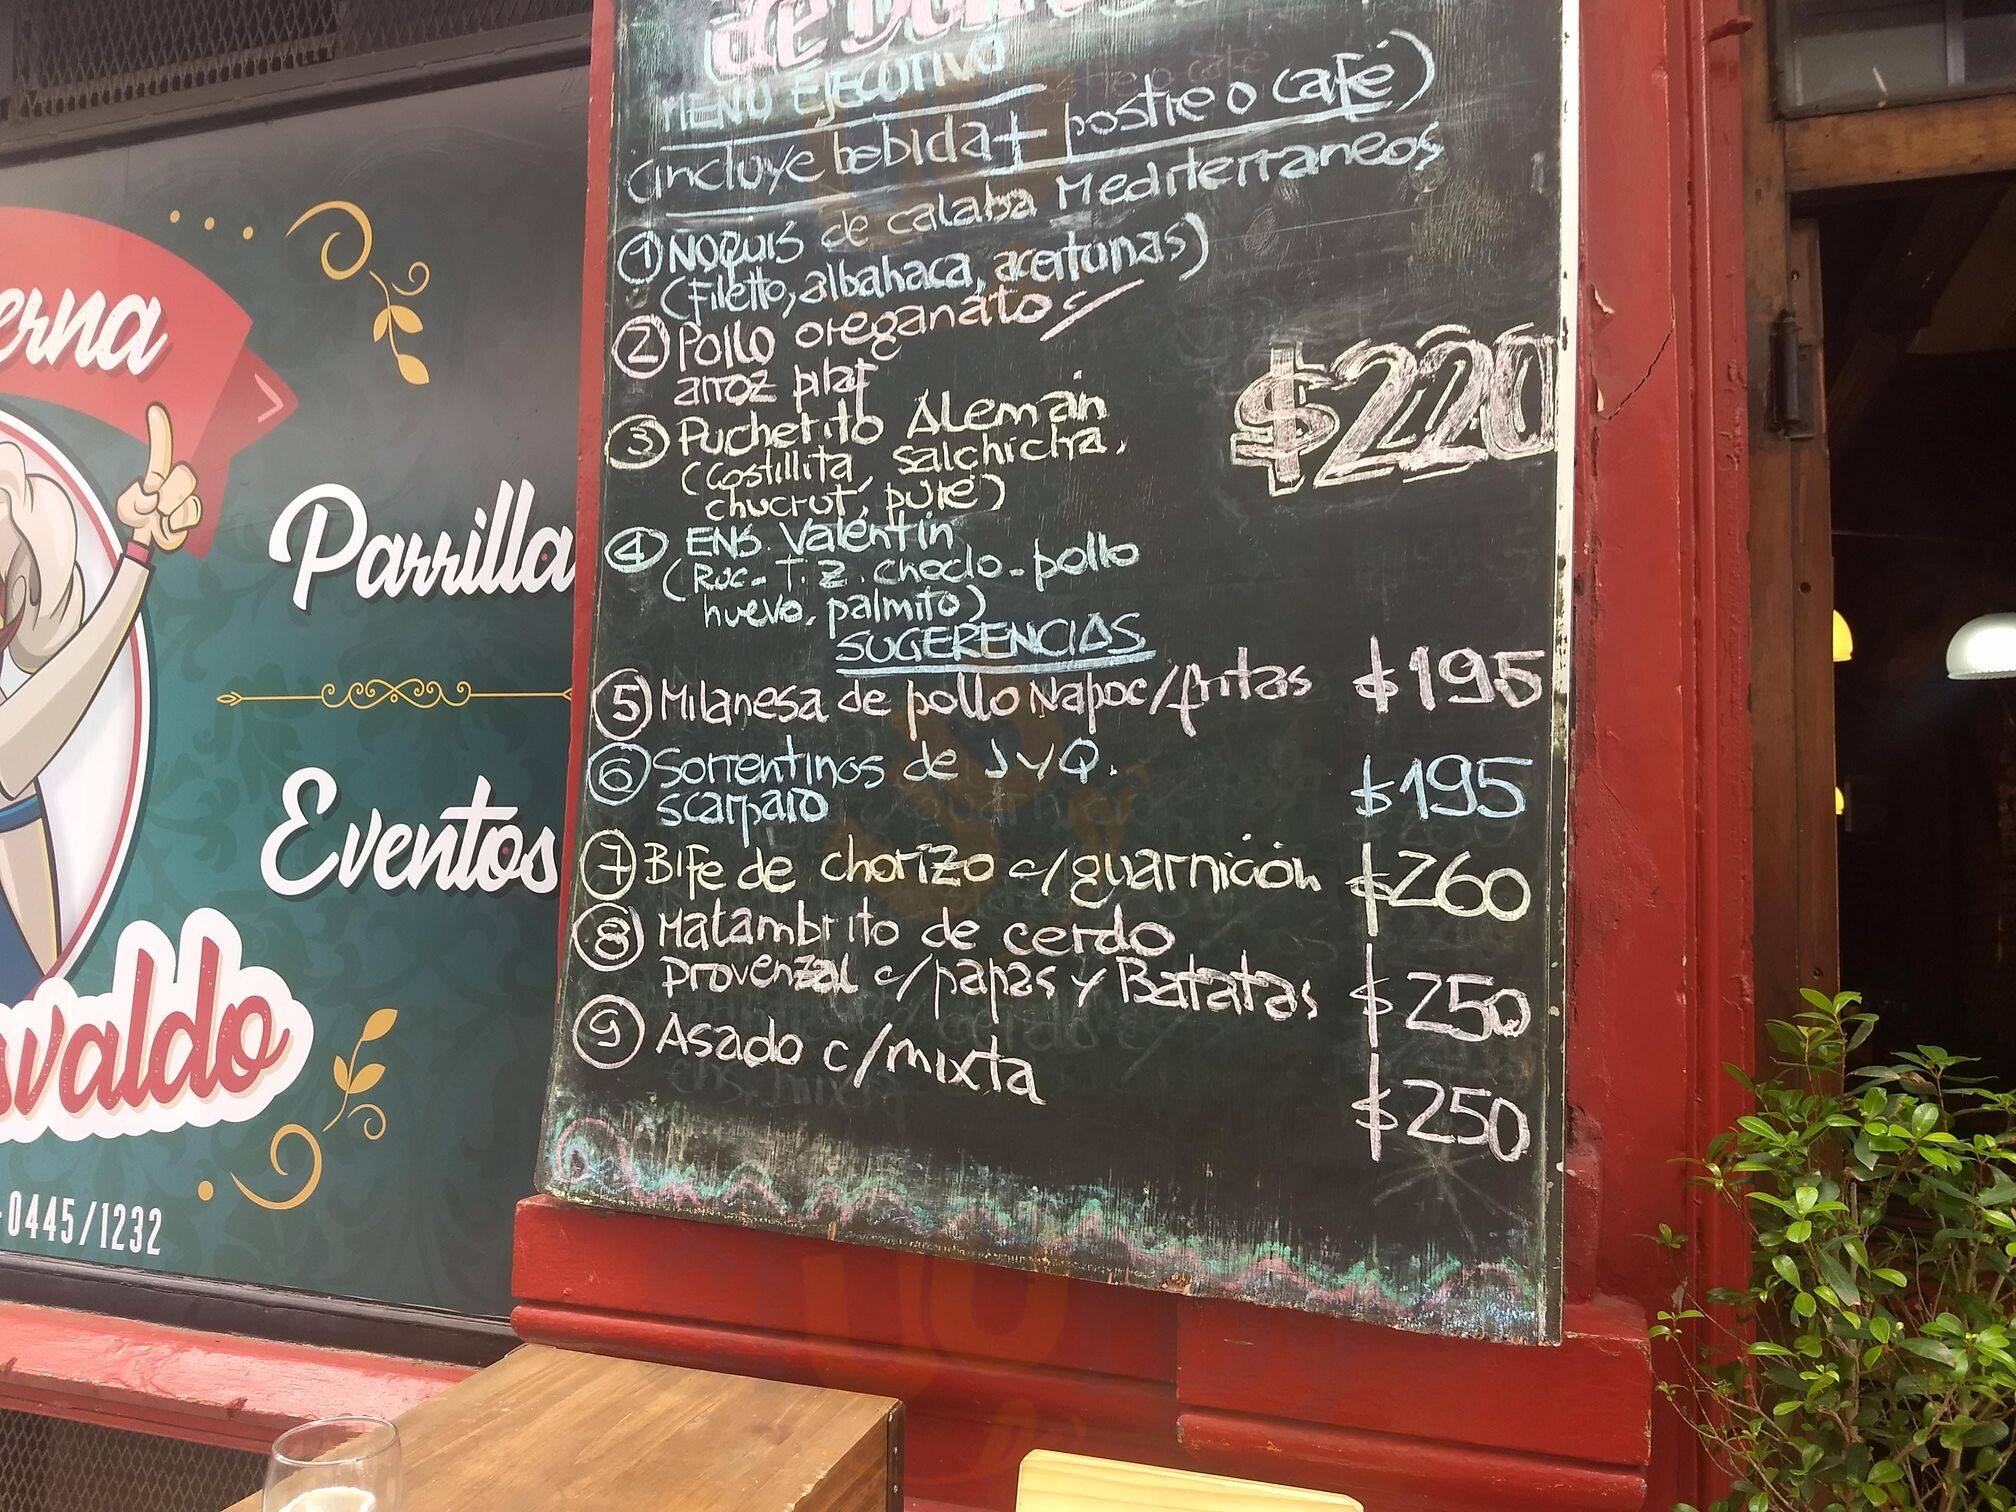 MENU EJECUTIVO
(incluye bebida + postre o café)
① ÑOQUIS de calabaza Mediterraneos
(Filetto, albahaca, aceitunas)
② Pollo oreganato c/
arroz pilaf
$220
③ Pucherito Alemán
(costillita, salchicha,
chucrut, puré)
④ ENS. Valentín
(Ruc - T. Z. choclo - pollo
huevo, palmito)
SUGERENCIAS
⑤ Milanesa de pollo Napo c/fritas $195
⑥ Sorrentinos de J y Q. $195
scarparo
⑦ Bife de chorizo c/guarnición $260
⑧ Matambrito de cerdo
Provenzal c/papas y Batatas $250
⑨ Asado c/mixta $250
erna
Parrilla
Eventos
svaldo
-0445/1232